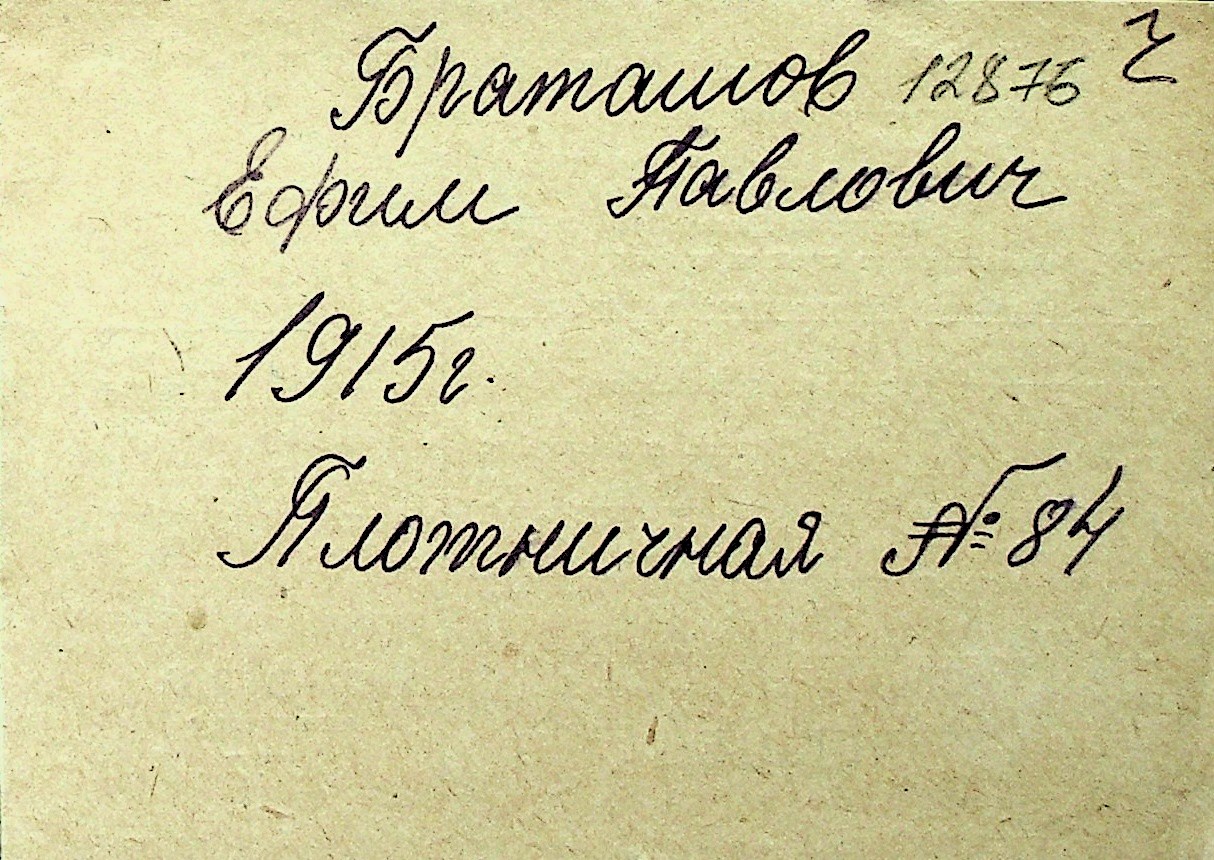 Браташов 12876 ч
Ефим Павлович
1915г.
Плотничная № 84